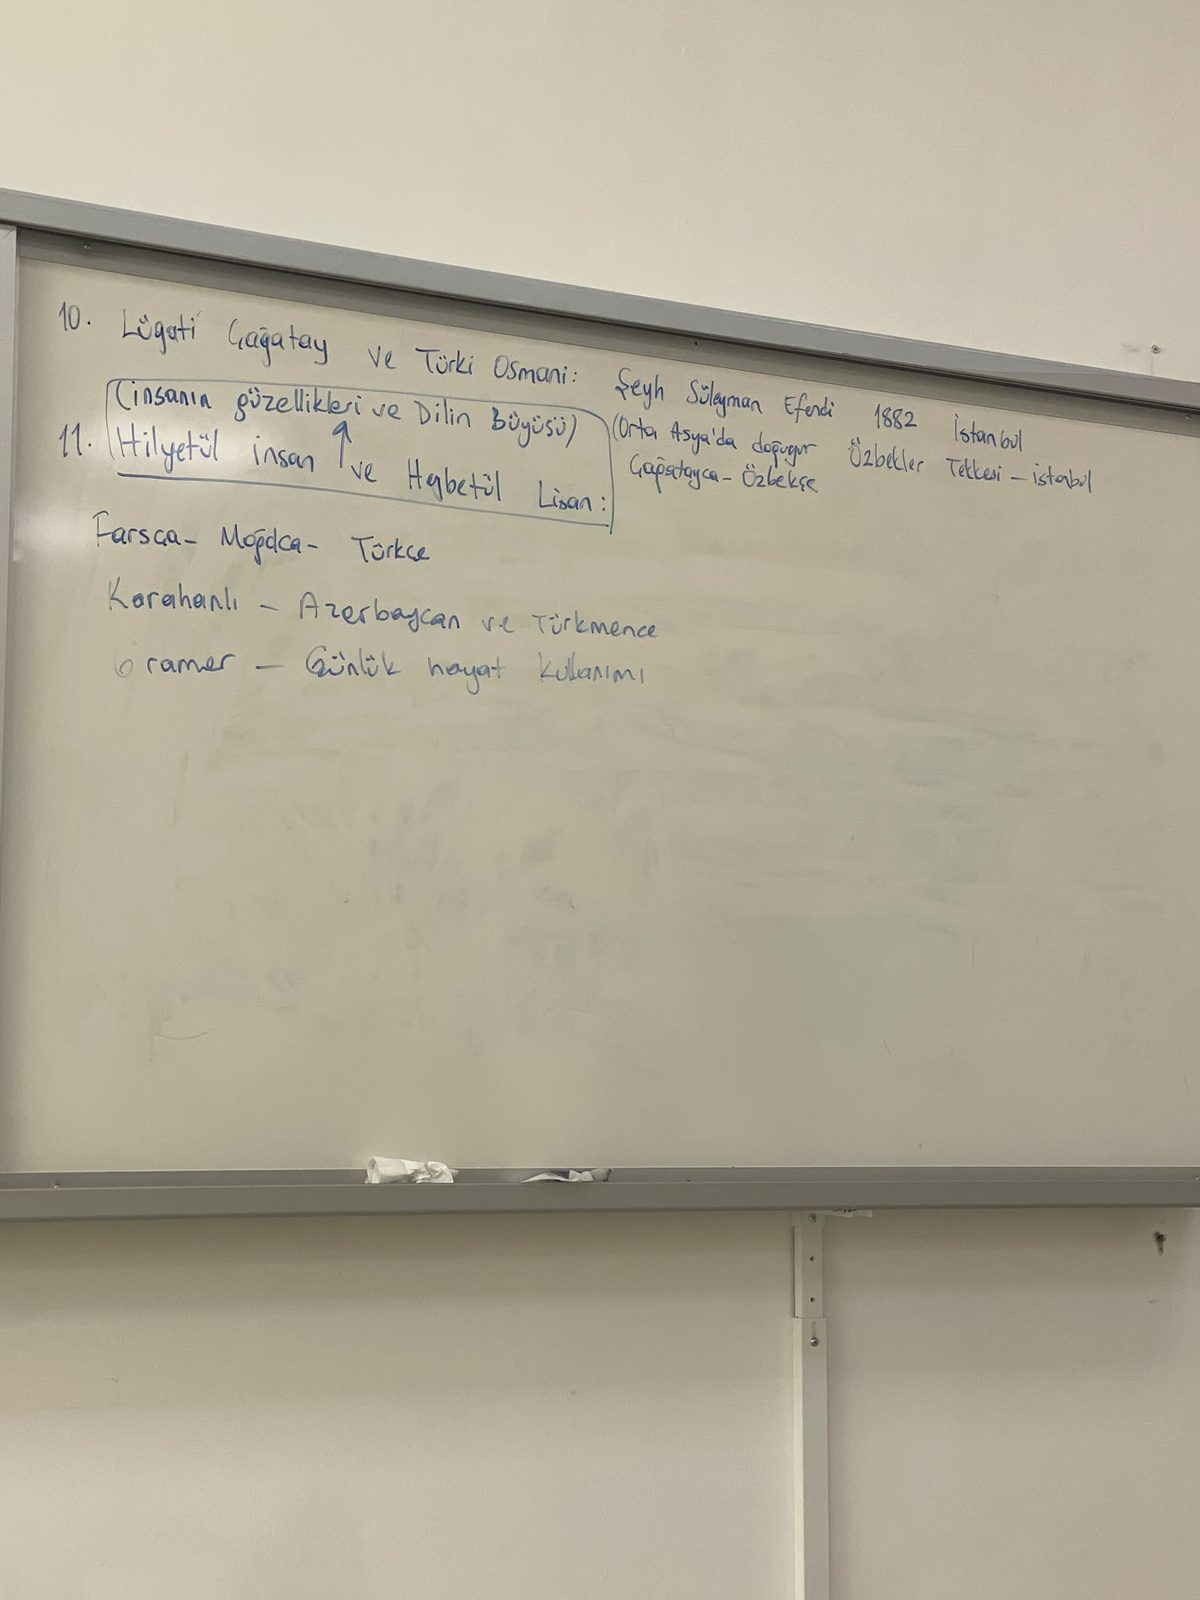 10. Lügati Çağatay ve Türki Osmani: Şeyh Süleyman Efendi 1882 İstanbul
(Orta Asya'da doğuyor Özbekler Tekkesi – istanbul
Çağatayca – Özbekçe
(insanın güzellikleri ve Dilin Büyüsü)
11. Hilyetül insan ve Heybetül Lisan:
Farsca – Moğolca – Türkçe
Karahanlı – Azerbaycan ve Türkmence
Gramer – Günlük hayat kullanımı